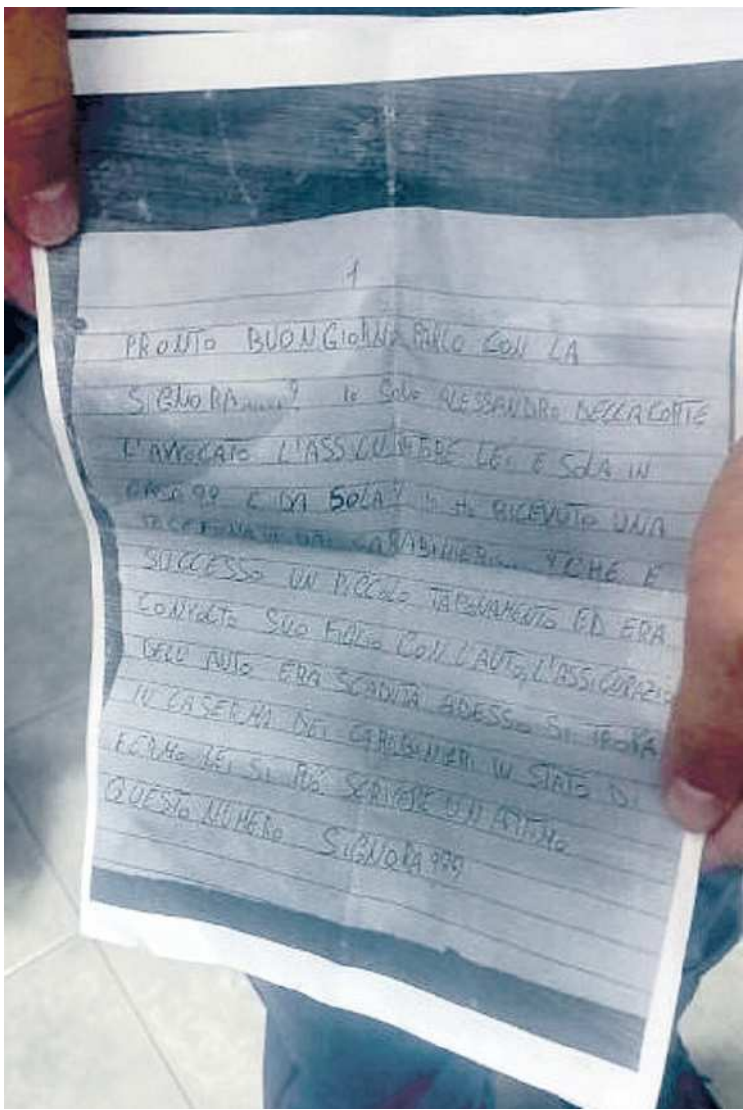 1
PRONTO BUONGIORNO PARLO CON LA
SIGNORA......? IO SONO ALESSANDRO DELLACORTE
L'AVVOCATO L'ASSICURATORE LEI E SOLA IN
CASA?? E DA SOLA? IO HO RICEVUTO UNA
TELEFONATA DAI CARABINIERI... CHE E
SUCCESSO UN PICCOLO TAPONAMENTO ED ERA
CONVOLTO SUO FIGLIO CON L'AUTO, L'ASSICURAZIO
DELL'AUTO ERA SCADUTA ADESSO SI TROVA
IN CASERMA DEI CARABINIERI IN STATO DI
FERMO LEI SI PUÒ SCRIVERE UN ATTIMO
QUESTO NUMERO SIGNORA???